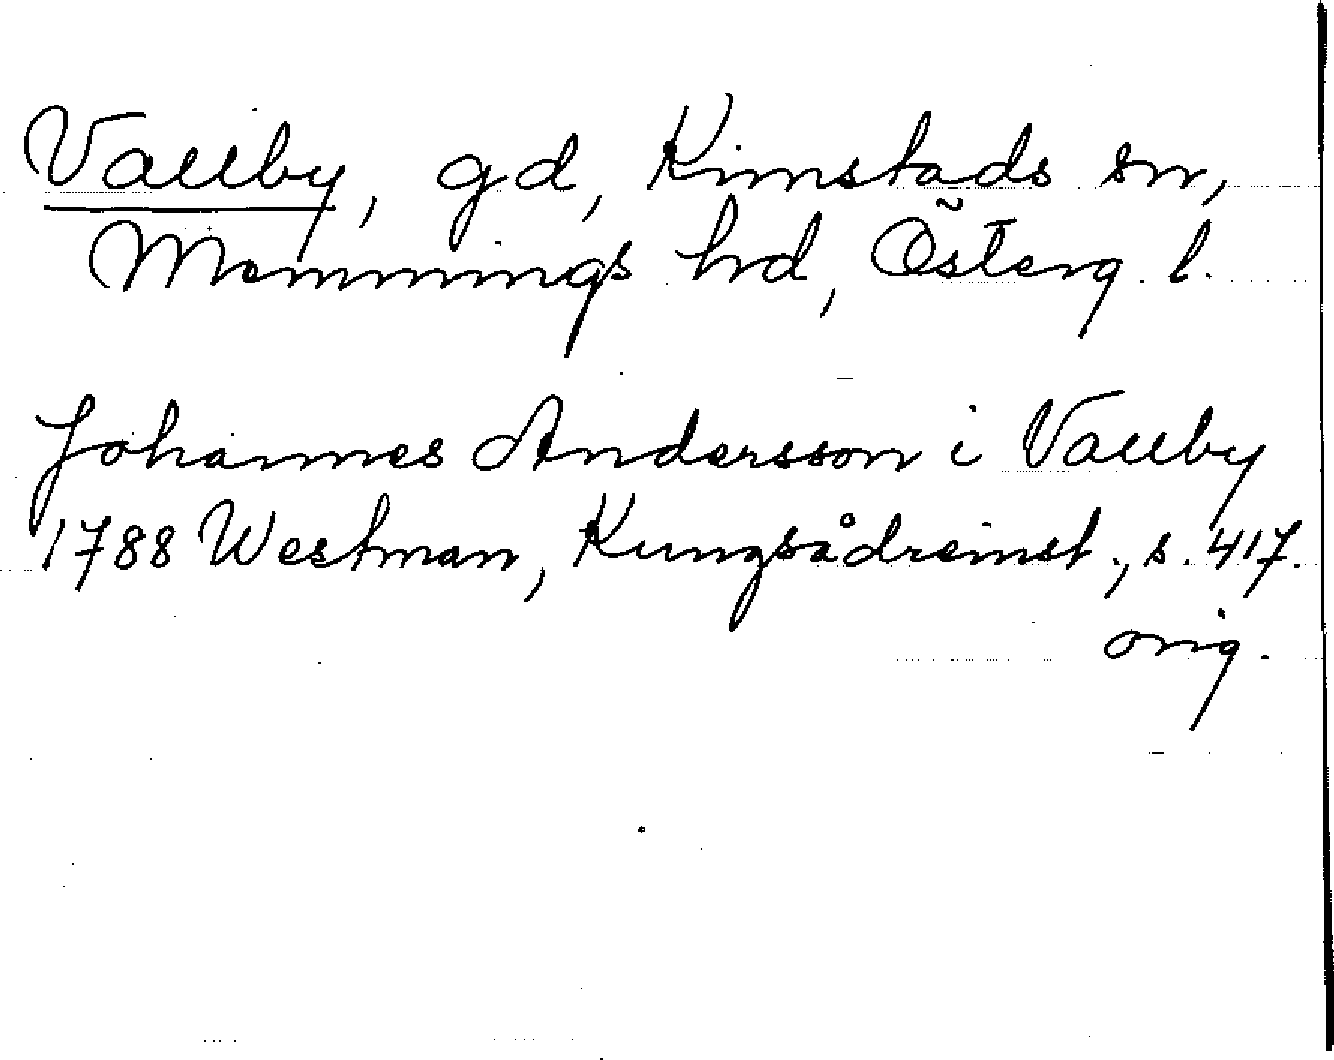 Vallby, gd, Kimstads sn,
Memmings hd, Österg. l.
Johannes Andersson i Vallby
1788 Westman, Kungsådreinst., s. 417.
orig.